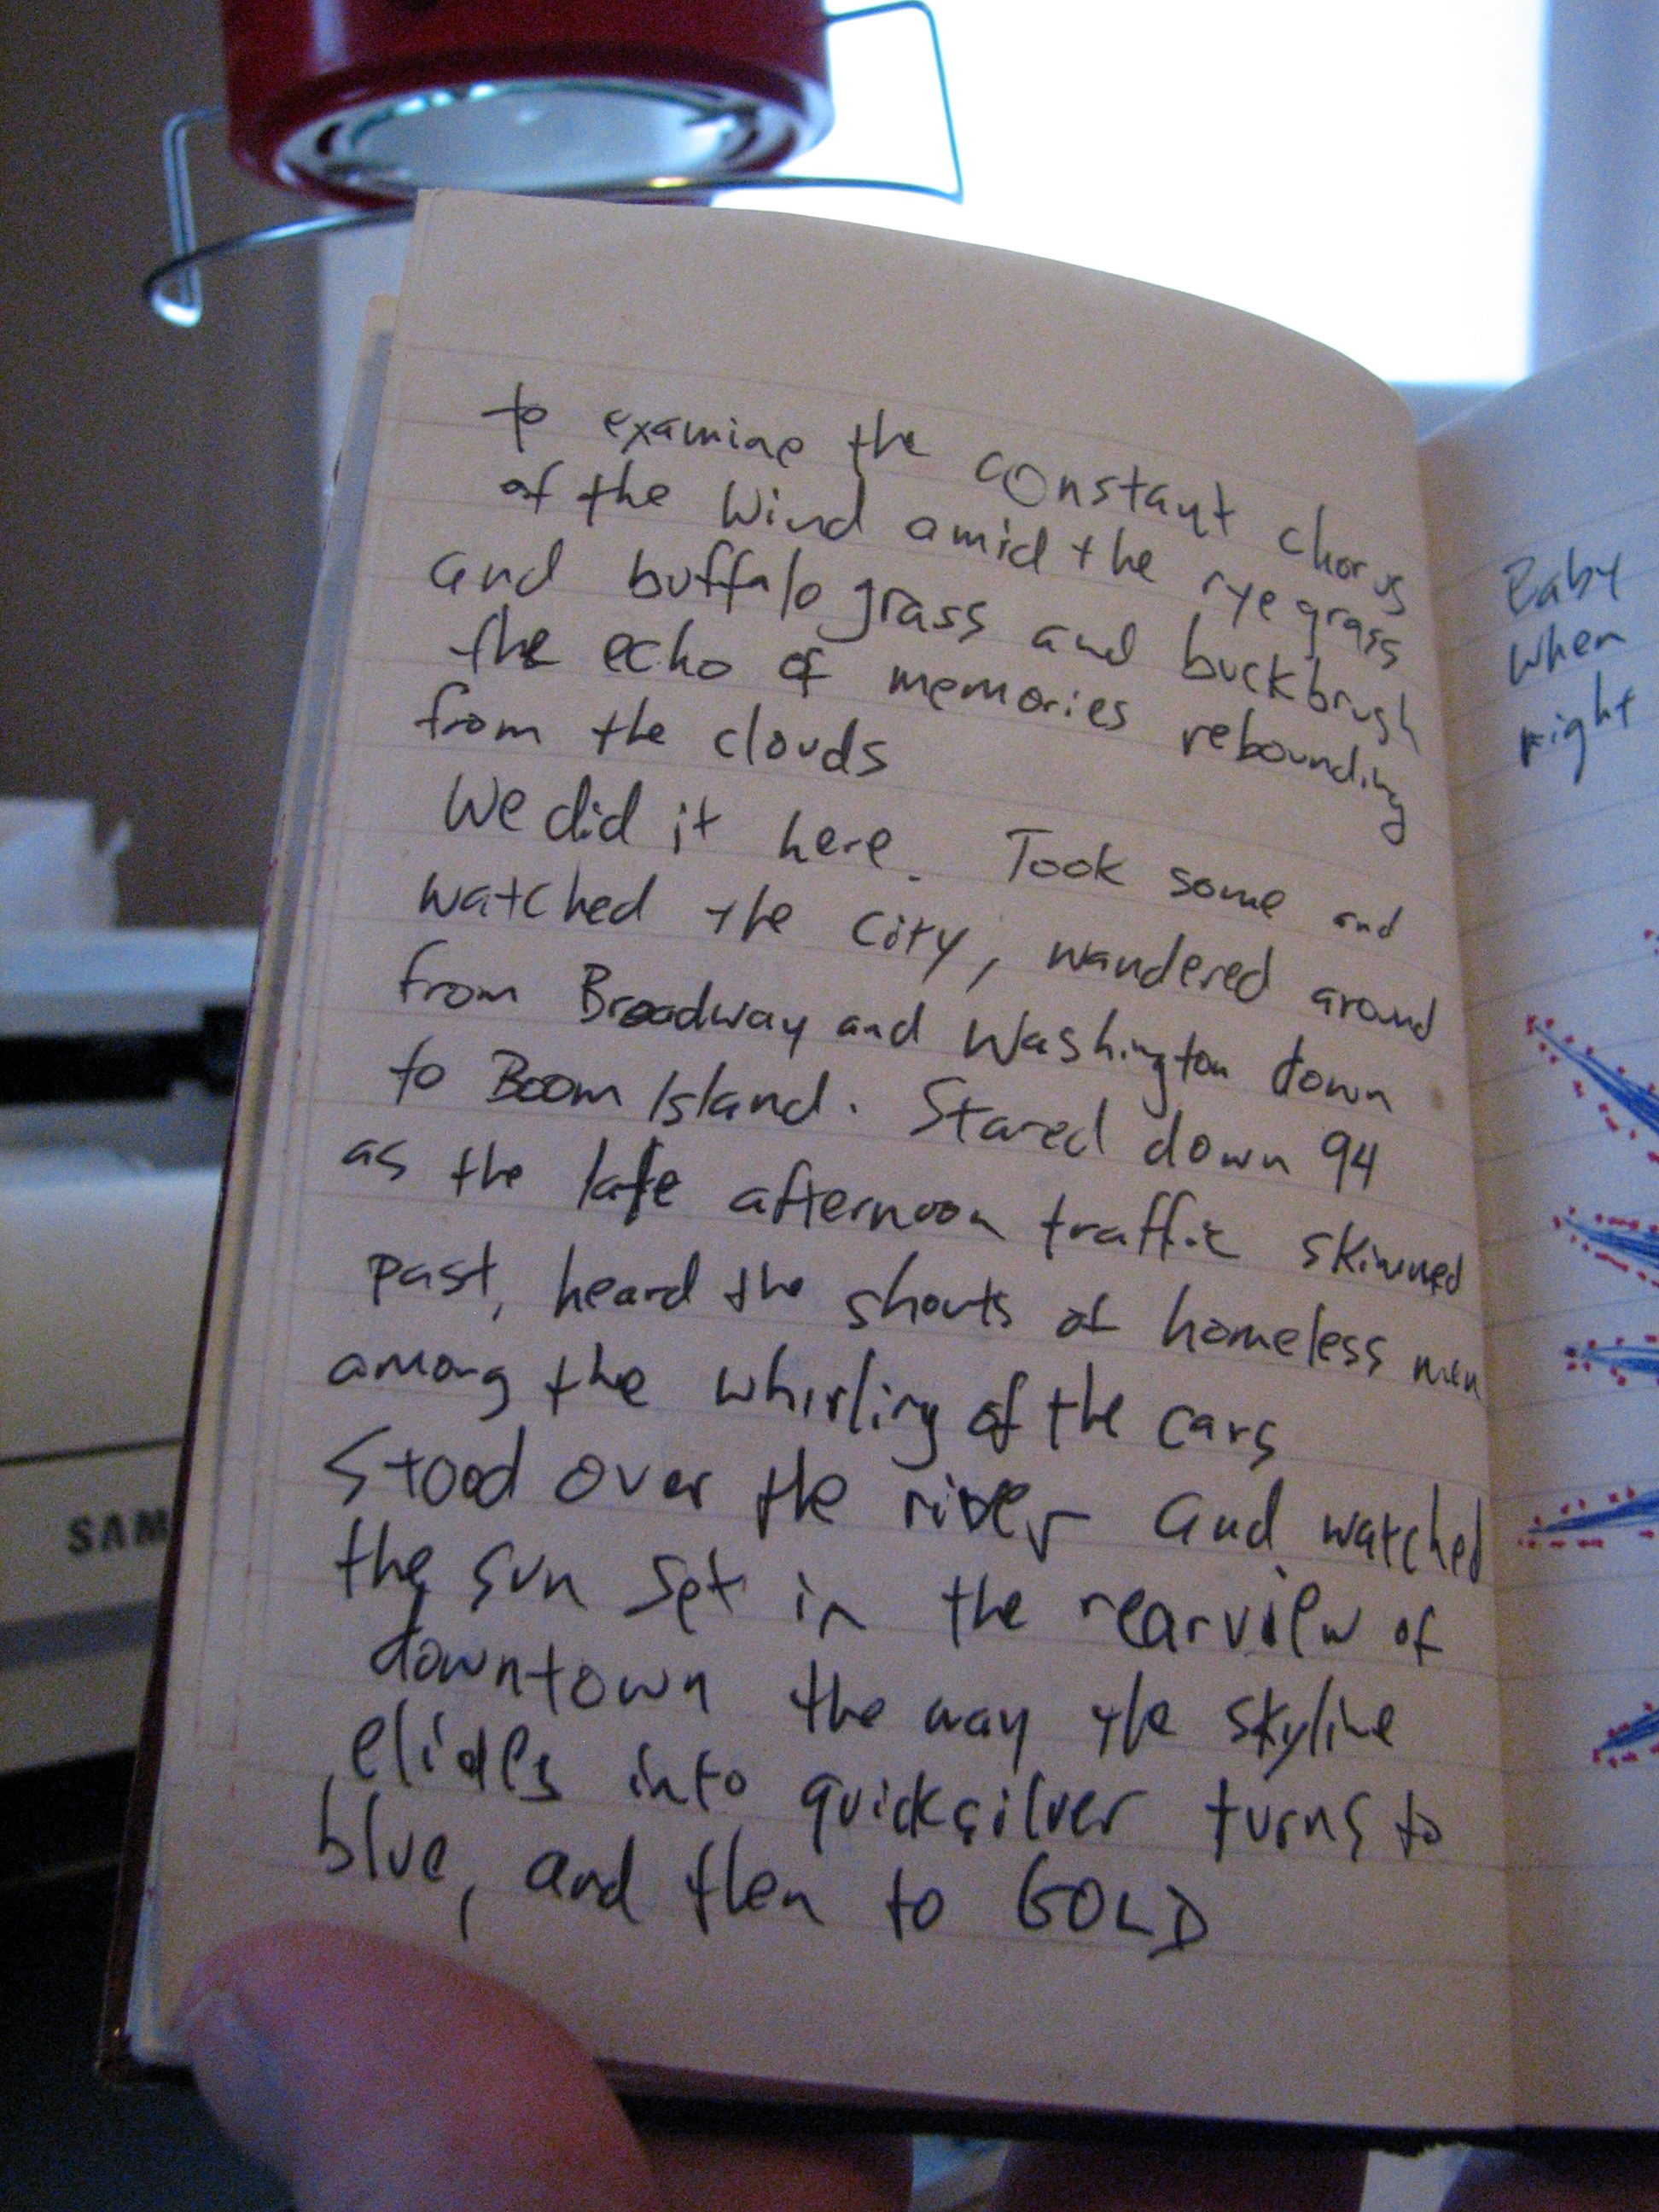 to examine the constant chorus
of the Wind amid the rye grass
and buffalo grass and buckbrush
the echo of memories rebounding
from the clouds
We did it here. Took some and
watched the city, wandered around
from Broadway and Washington down
to Boom Island. Stared down 94
as the late afternoon traffic skimmed
past, heard the shouts of homeless men
among the whirling of the cars
Stood over the river and watched
the sun set in the rearview of
downtown the way the skyline
elides into quicksilver turns to
blue, and then to GOLD
Baby
When
night
SAM